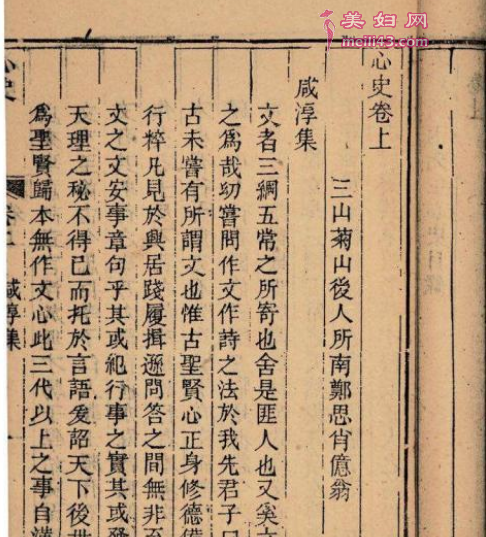 美妇网
meili43.com
心史卷上
三山菊山後人所南鄭思肖億翁
咸淳集
文者三綱五常之所寄也舍是匪人也又奚文
之爲哉切嘗問作文作詩之法於我先君子曰
古未嘗有所謂文也惟古聖賢心正身修德備
行粹凡見於興居踐履揖遜問答之間無非至
文之文安事章句乎其或紀行事之實其或發
天理之秘不得已而托於言語爰詔天下後世
爲聖賢歸本無作文心此三代以上之事自漢
心史
咸淳集